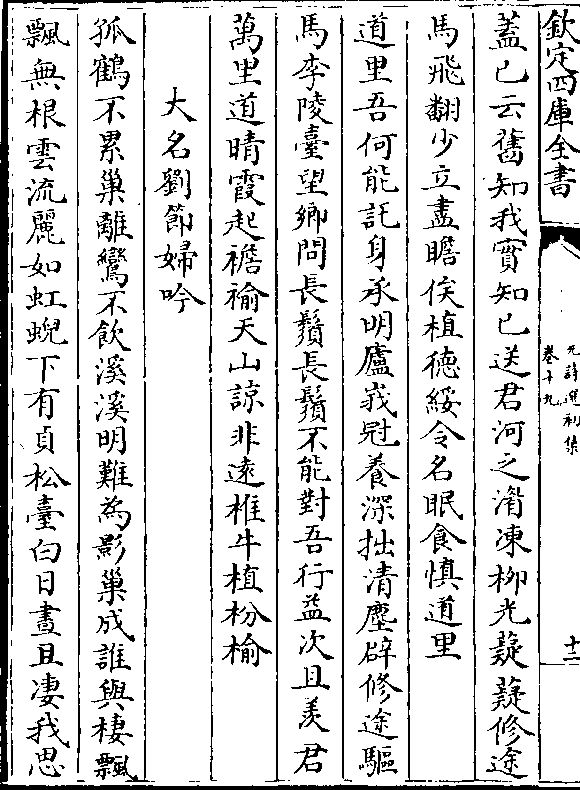 欽定四庫全書
元詩選初集
卷十九
十二
蓋已云舊知我實知已送君河之濆凍柳光薿薿修途
馬飛翻少立盡瞻俟植徳綏令名眠食慎道里
道里吾何能託身承明廬峩冠養深拙清塵辟修途驅
馬李陵臺望鄉問長鬚長鬚不能對吾行益次且羨君
萬里道晴霞起襜褕天山諒非遠椎牛植枌榆
大名劉節婦吟
孤鶴不累巢離鸞不飲溪溪明難為影巢成誰與棲飄
飄無根雲流麗如虹蜺下有貞松臺白日晝且凄我思